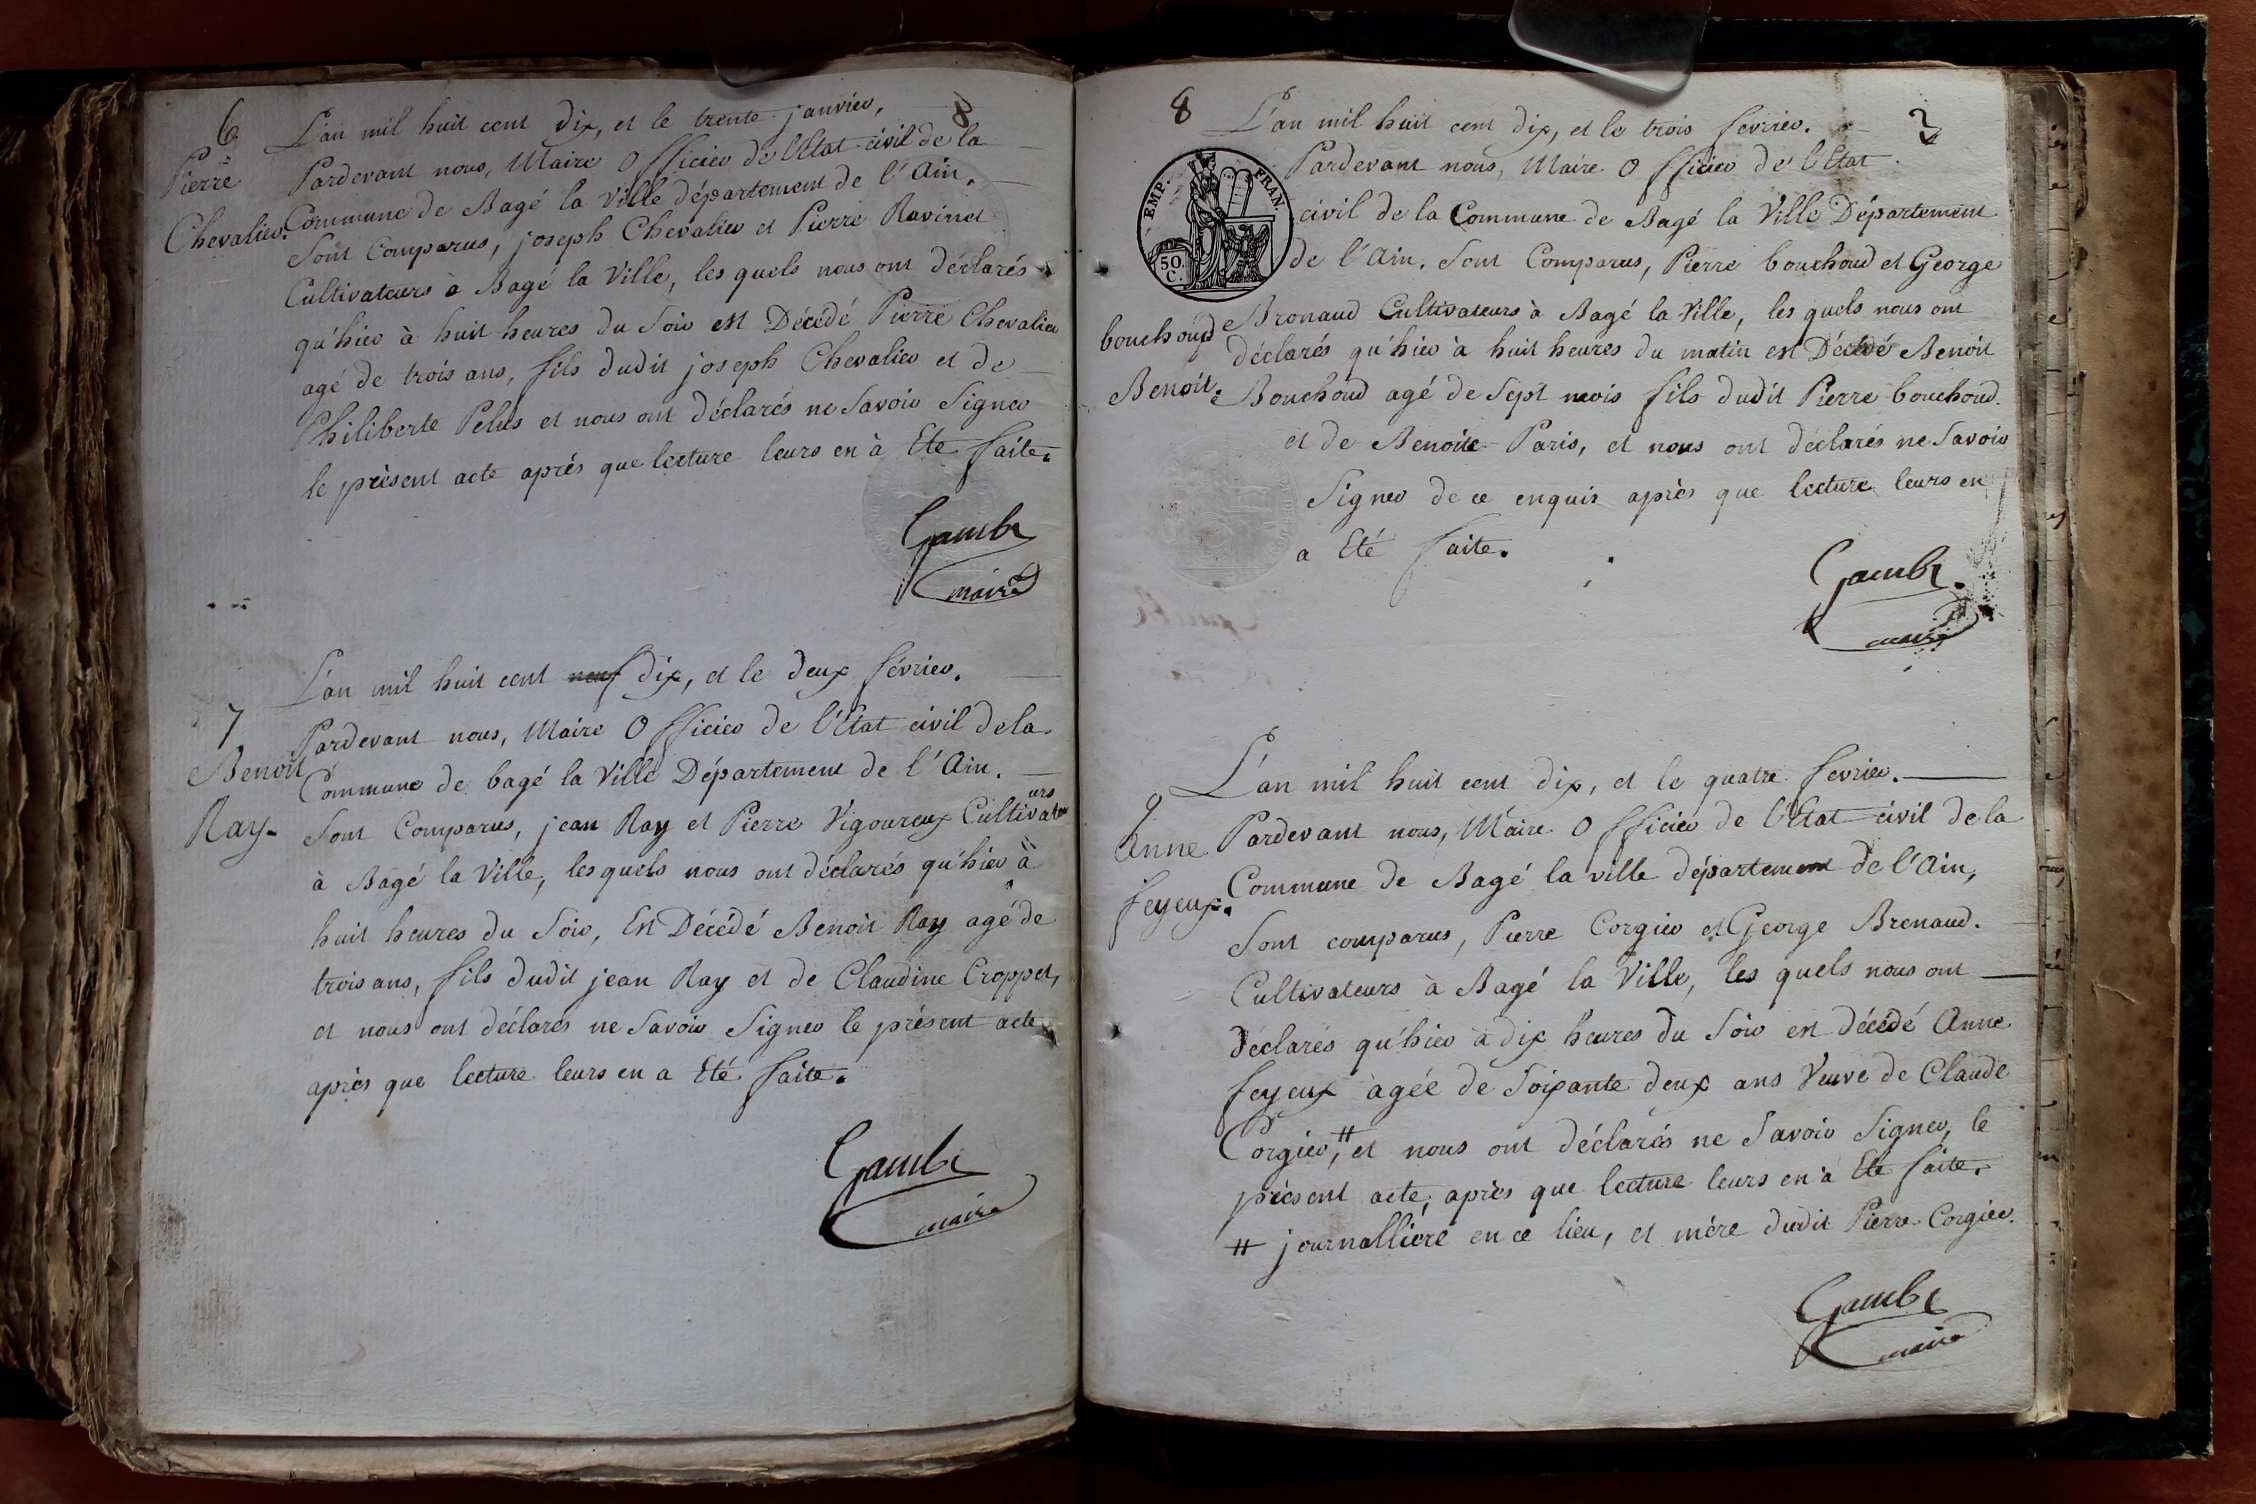 6
8
L'an mil huit cent dix, et le trente janvier,
Pierre
Pardevant nous, Maire Officier de l'Etat civil de la
Chevalier.
Commune de Bagé la Ville département de l'Ain.
Sont Comparus, joseph Chevalier et Pierre Ravinet
Cultivateurs à Bagé la Ville, les quels nous ont déclarés
qu'hier à huit heures du Soir est Décédé Pierre Chevalier
agé de trois ans, fils dudit joseph Chevalier et de
Philiberte Pelus et nous ont déclarés ne Savoir Signer
le présent acte aprés que lecture leurs en à Eté faite.
Gambr
maire
7
Benoit
Ray.
L'an mil huit cent neuf dix, et le deux février.
Pardevant nous, Maire Officier de l'Etat civil dela
Commune de bagé la Ville Département de l'Ain.
Sont Comparus, jean Ray et Pierre Vigoureux Cultivateurs
à Bagé la Ville, lesquels nous ont déclarés qu'hier à
huit heures du Soir, Est Décédé Benoit Ray agé de
trois ans, fils dudit jean Ray et de Claudine Croppet,
et nous ont déclarés ne Savoir Signer le présent acte
après que lecture leurs en a Eté faite.
Gambr
maire
8
L'an mil huit cent dix, et le trois fevrier.
Pardevant nous, Maire Officier de l'Etat
EMP. FRAN.
50.
C.
civil de la Commune de Bagé la Ville Département
de l'Ain. Sont Comparus, Pierre bouchoud et George
bouchoud
Benoit.
Bronaud Cultivateurs à Bagé la Ville, les quels nous ont
déclarés qu'hier à huit heures du matin est Décédé Benoit
Bouchoud agé de Sept mois fils dudit Pierre bouchoud.
et de Benoite Paris, et nous ont déclarés ne Savoir
Signer de ce enquis après que lecture leurs en
a Eté faite.
Gambr
maire
9
Anne
feyeux.
L'an mil huit cent dix, et le quatre fevrier.
Pardevant nous, Maire Officier de l'Etat civil de la
Commune de Bagé la ville département de l'Ain,
Sont comparus, Pierre Corgier et George Brenaud.
Cultivateurs à Bagé la Ville, les quels nous ont
déclarés qu'hier à dix heures du Soir est décédé Anne
feyeux agée de Soixante deux ans Veuve de Claude
Corgier, # et nous ont déclarés ne Savoir Signer, le
présent acte, après que lecture leurs en à Eté faite.
# journallière en ce lieu, et mère dudit Pierre Corgier.
Gambr
maire